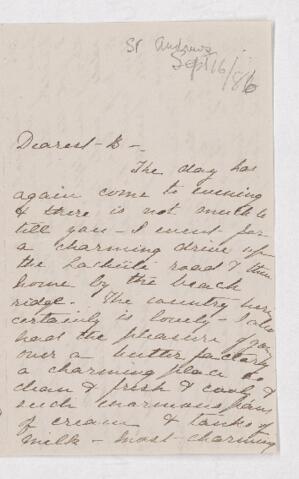 St Andrews
Sept 16/86
Dearest - B -
The day has
again come to evening
& there is not much to
tell you - I went for
a charming drive up
the Lachute road & then
home by the beach
ridge. The country here
certainly is lovely - I also
had the pleasure of going
over a butter factory
a charming place so
clean & fresh & cool, &
such enormous pans
of cream & tanks of
milk - most charming